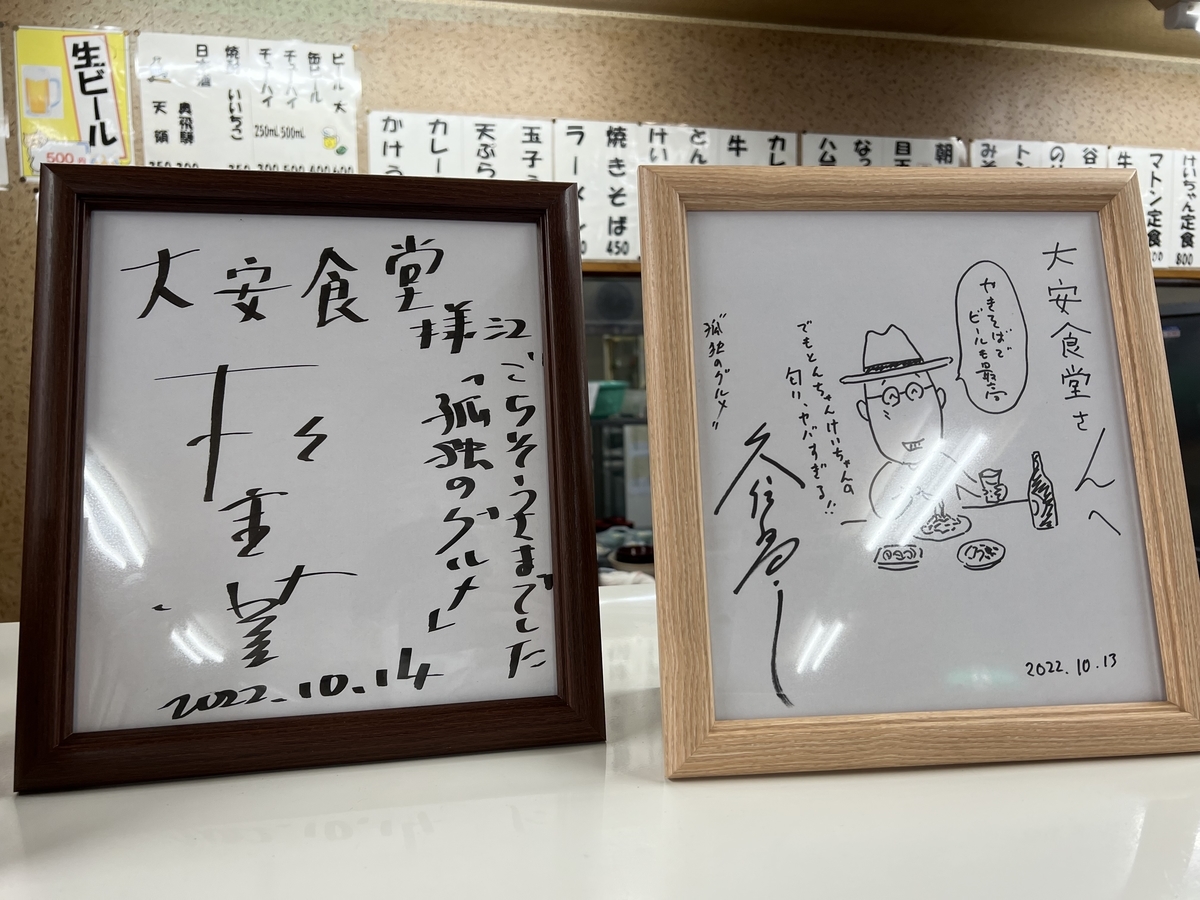 生ビール
500
ビール 大
缶ビール
チューハイ 500mL
チューハイ 250mL
焼酎 いいちこ
日本酒
奥飛騨
天領
かけう
カレー
天ぷら
玉子
ラーメン
焼きそば 450
けい
とん
牛
カレ
ハム
なっ
目玉
朝
みそ
トン
のり
谷
牛
マトン定食
けいちゃん定食 800
大安食堂
様江
ごちそうさまでした
「孤独のグルメ」
松重豊
2022.10.14
大安食堂さんへ
やきそばで
ビールも最高
でもとんちゃんけいちゃんの
匂い、ヤバすぎる!!
"孤独のグルメ"
久住昌之
2022.10.13